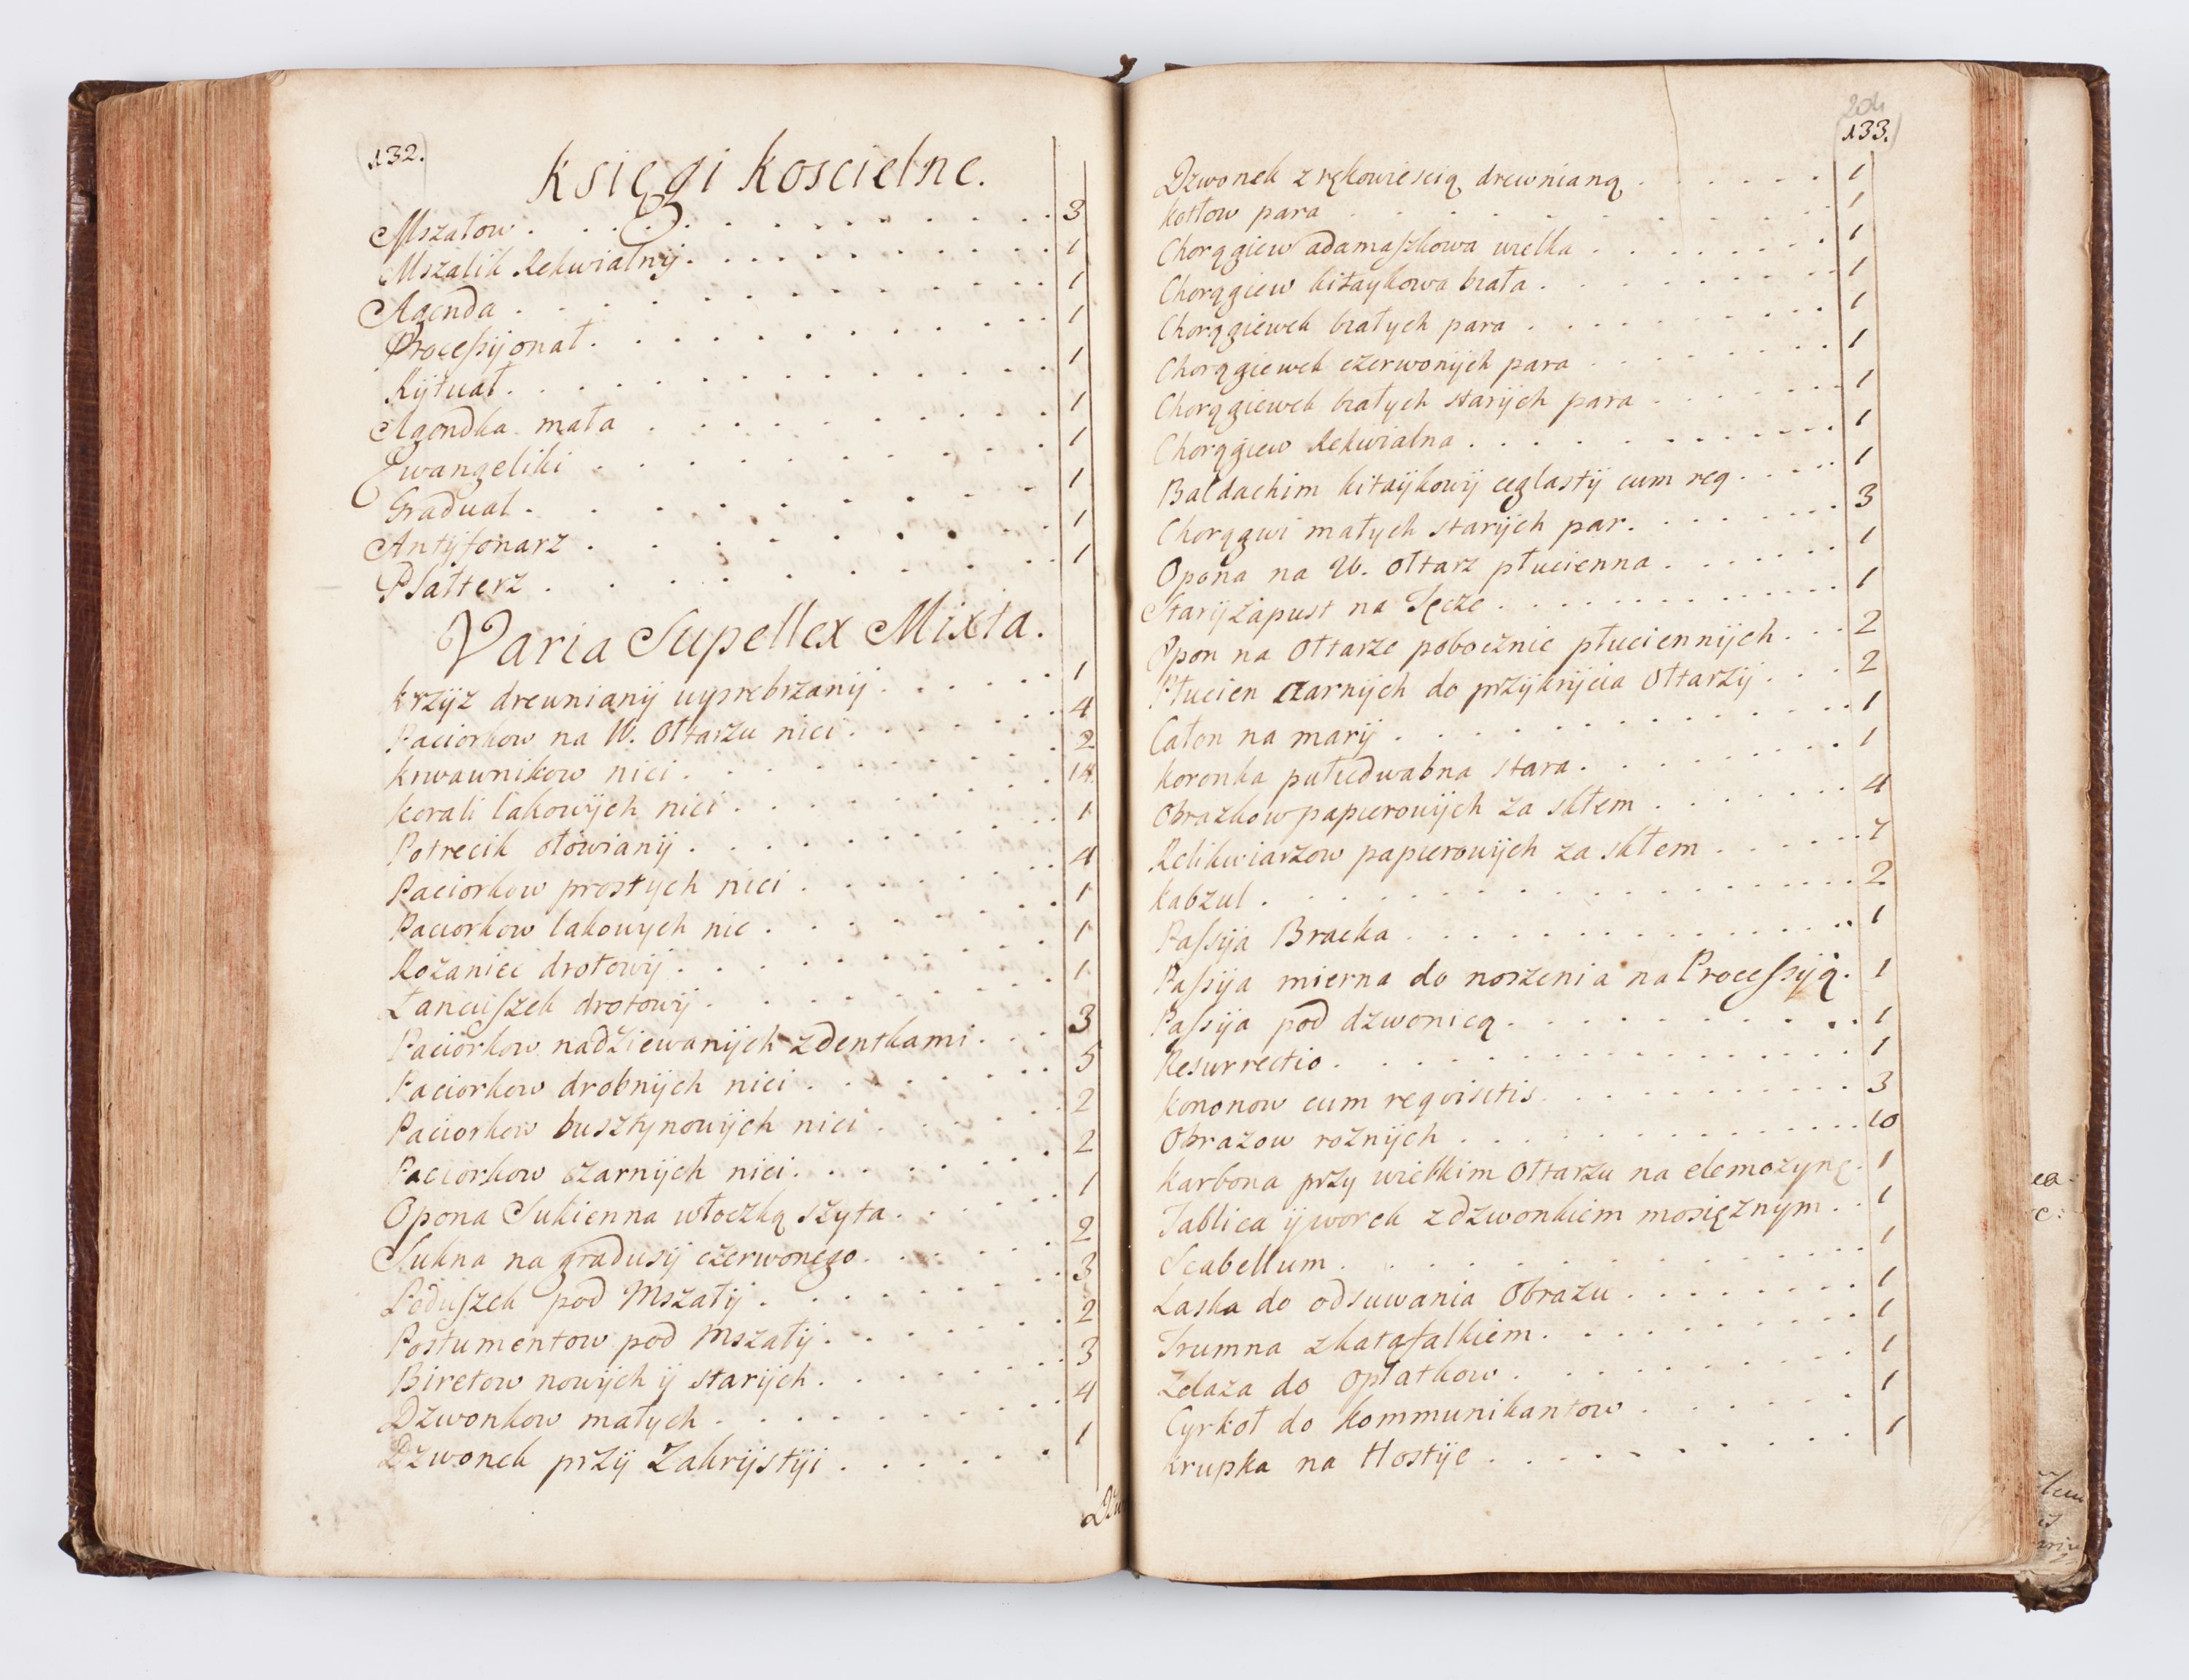 132.
Księgi Koscielne.
Mszałow . . . . . . . . . . 3
Mszalik Rekwialnÿ . . . . . . . . . 1
Agenda . . . . . . . . . . 1
Processÿonał . . . . . . . . . 1
Rÿtuał . . . . . . . . . . 1
Agendka mała . . . . . . . . 1
Ewangeliki . . . . . . . . . 1
Graduał . . . . . . . . . 1
Antÿfonarz . . . . . . . . 1
Psałterz . . . . . . . . . 1
Varia Supellex Mixta.
Krzÿz drewnianÿ wysrebrzanÿ . . . . . 1
Paciorkow na W. Ołtarzu nici . . . . . . 4
Krwawnikow nici . . . . . . . . 2
Korali lakowÿch nici . . . . . . . . 14.
Potrecik ołowianÿ . . . . . . . . 1
Paciorkow prostych nici . . . . . . . 4
Paciorkow lakowych nic . . . . . . . 1
Rozaniec drotowÿ . . . . . . . . 1
Łancuszek drotowÿ . . . . . . . . 1
Paciorkow nadziewanÿch z dentkami . . . 3
Paciorkow drobnÿch nici . . . . . . . 5
Paciorkow busztynowÿch nici . . . . . 2
Paciorkow czarnÿch nici . . . . . . . 2
Opona Sukienna włoczką szyta . . . . . 1
Sukna na gradusÿ czerwonego . . . . . 2
Poduszek pod Mszałÿ . . . . . . . 3
Postumentow pod Mszałÿ . . . . . . 2
Biretow nowÿch ÿ starÿch . . . . . . 3
Dzwonkow małych . . . . . . . . 4
Dzwonek przÿ Zakrÿstÿi . . . . . . 1
Dzw
204
133.
Dzwonek z rękowiescią drewnianą . . . . . . 1
Kotłow para . . . . . . . . . 1
Chorągiew adamaszkowa wielka . . . . . . 1
Chorągiew kitaykowa biała . . . . . . . 1
Chorągiewek białych para . . . . . . . 1
Chorągiewek czerwonÿch para . . . . . . 1
Chorągiewek białych starÿch para . . . . . 1
Chorągiew Rekwialna . . . . . . . . 1
Baldachim kitaÿkowÿ ceglastÿ cum req . . . . 1
Chorągwi małych starÿch par. . . . . . . 3
Opona na W. Ołtarz płucienna . . . . . . 1
Starÿ zapust na Tęcze . . . . . . . . 1
Opon na Ołtarze pobocznie płuciennÿch . . . 2
Płucien czarnÿch do przÿkrÿcia Ołtarzÿ . . . 2
Całon na marÿ . . . . . . . . . 1
Koronka pułiedwabna stara . . . . . . . 1
Obrazkow papierowÿch za skłem . . . . . . 4
Relikwiarzow papierowÿch za skłem . . . . . 7
Kabzul . . . . . . . . . . . 2
Passÿa Bracka . . . . . . . . . . 1
Passÿa mierna do noszenia na Processÿą. 1
Passÿa pod dzwonicą . . . . . . . . 1
Resurrectio . . . . . . . . . . 1
Kononow cum reqvisitis . . . . . . . . 3
Obrazow roznÿch . . . . . . . . . 10
Karbona przy wielkim Ołtarzu na elemozynę . 1
Tablica ÿ worek z dzwonkiem mosięznym . . 1
Scabellum . . . . . . . . . . 1
Laska do odsuwania Obrazu . . . . . . 1
Trumna z katafalkiem . . . . . . . . 1
Zelaza do Opłatkow . . . . . . . . 1
Cyrkoł do Kommunikantow . . . . . . 1
Krupka na Hostÿe . . . . . . . . 1